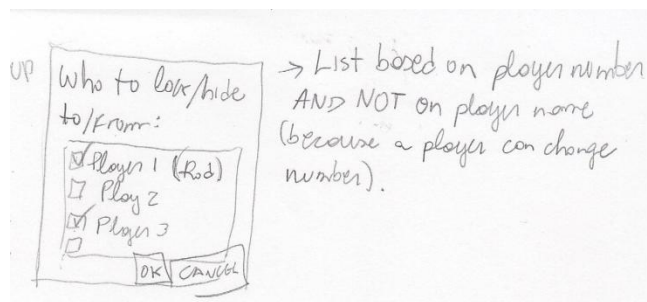 UP
Who to lock/hide
to/from:
Player 1 (Rod)
Play 2
Player 3
OK CANCEL
→ List based on player number
AND NOT on player name
(because a player can change
number).